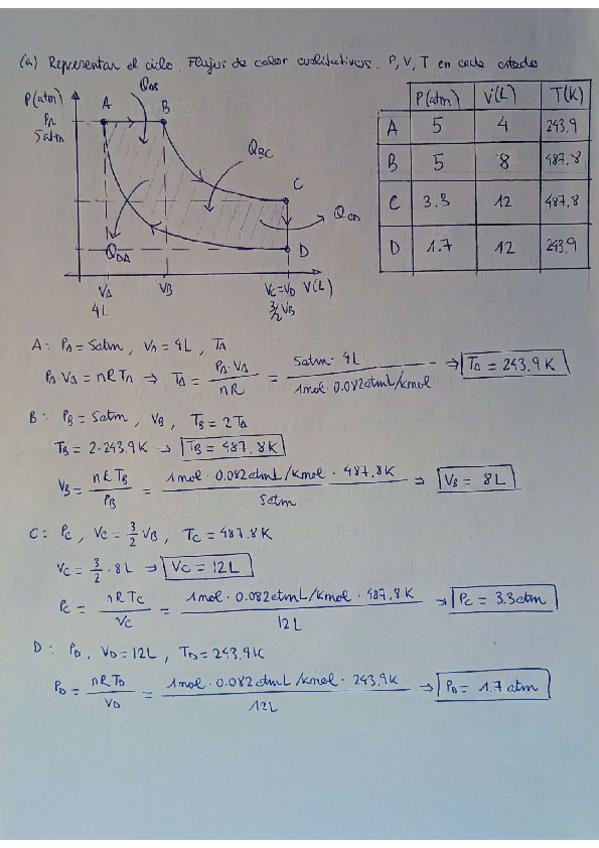 (a) Representar el ciclo. Flujos de calor cualitativos. P, V, T en cada estado
P(atm)
PA
5atm
A
B
C
D
QAB
QBC
QCD
QDA
VA
4L
VB
VC=VD
3/2 VB
V(L)
P(atm) V(L) T(K)
A 5 4 243.9
B 5 8 487.8
C 3.3 12 487.8
D 1.7 12 243.9
A: PA = 5atm, VA = 4L, TA
PA·VA = nRTA → TA = PA·VA / nR = 5atm·4L / 1mol·0.082atmL/Kmol → TA = 243.9K
B: PB = 5atm, VB, TB = 2TA
TB = 2·243.9K → TB = 487.8K
VB = nRTB / PB = 1mol·0.082atmL/Kmol·487.8K / 5atm → VB = 8L
C: PC, VC = 3/2 VB, TC = 487.8K
VC = 3/2·8L → VC = 12L
PC = nRTC / VC = 1mol·0.082atmL/Kmol·487.8K / 12L → PC = 3.3atm
D: PD, VD = 12L, TD = 243.9K
PD = nRTD / VD = 1mol·0.082atmL/Kmol·243.9K / 12L → PD = 1.7atm